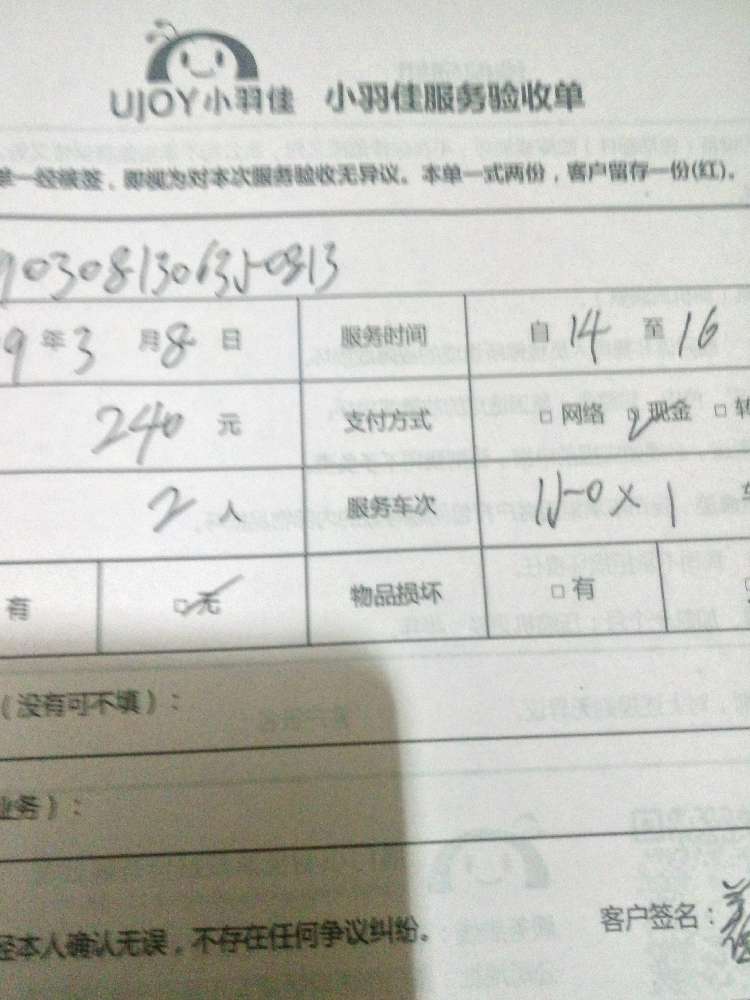 UJOY小羽佳 小羽佳服务验收单
单一经核签，即视为对本次服务验收无异议。本单一式两份，客户留存一份(红)。
903081306350813
9年3月8日 服务时间 自14至16
240元 支付方式 □网络 □现金 □转
2人 服务车次 150×1
有 □无 物品损坏 □有
（没有可不填）：
业务）：
经本人确认无误，不存在任何争议纠纷。
客户签名：